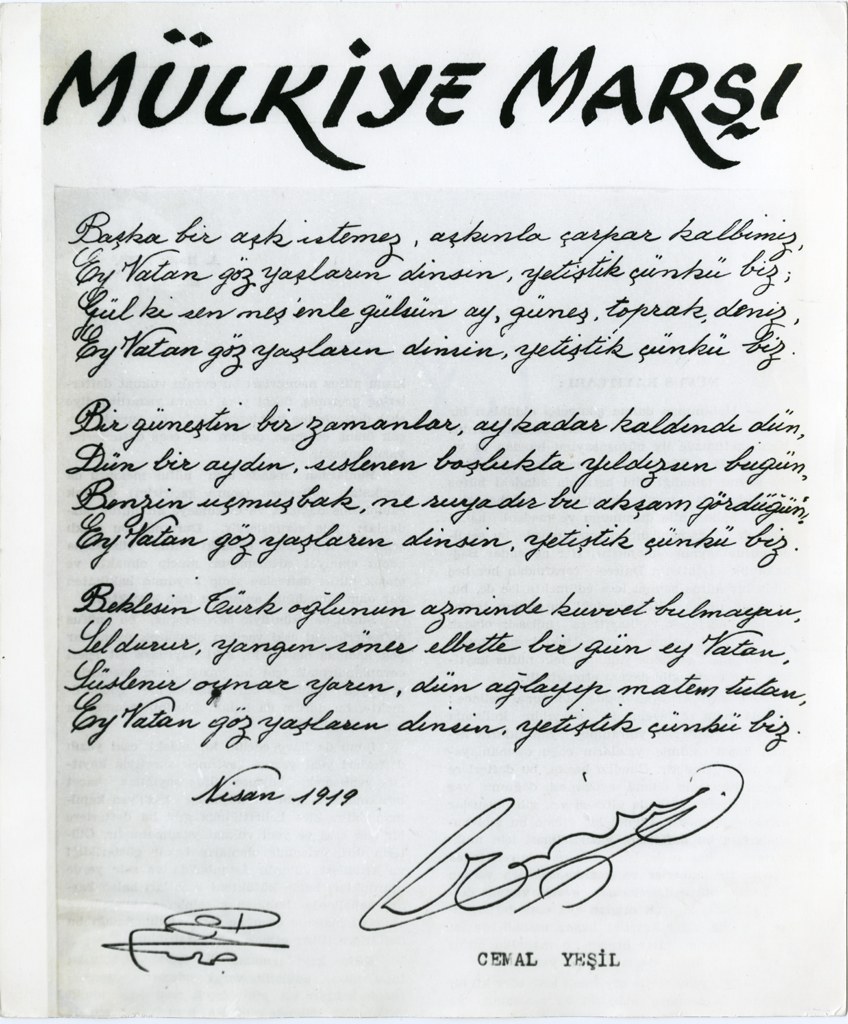 MÜLKİYE MARŞI
Başka bir aşk istemez, aşkınla çarpar kalbimiz,
Ey Vatan göz yaşların dinsin, yetiştik çünkü biz;
Gül ki sen neş'enle gülsün ay, güneş, toprak, deniz,
Ey Vatan göz yaşların dinsin, yetiştik çünkü biz.
Bir güneştin bir zamanlar, ay kadar kaldındı dün,
Dün bir aydın, sislenen boşlukta yıldızsın bugün,
Benzin uçmuş bak, ne ruyadır bu akşam gördüğün,
Ey Vatan göz yaşların dinsin, yetiştik çünkü biz.
Beklesin Türk oğlunun azminde kuvvet bulmayan,
Sel durur, yangın söner elbette bir gün ey Vatan,
Süslenir oynar yarın, dün ağlayıp matem tutan,
Ey Vatan göz yaşların dinsin, yetiştik çünkü biz.
Nisan 1919
CEMAL YEŞİL